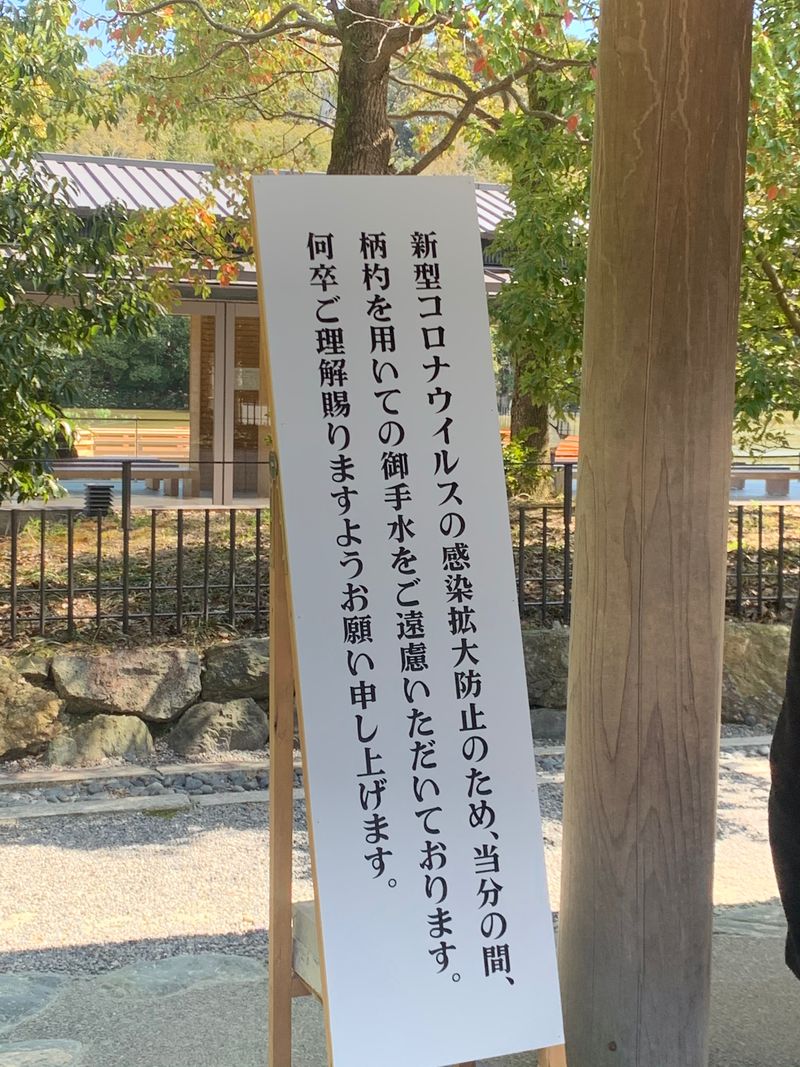 新型コロナウイルスの感染拡大防止のため、当分の間、
柄杓を用いての御手水をご遠慮いただいております。
何卒ご理解賜りますようお願い申し上げます。